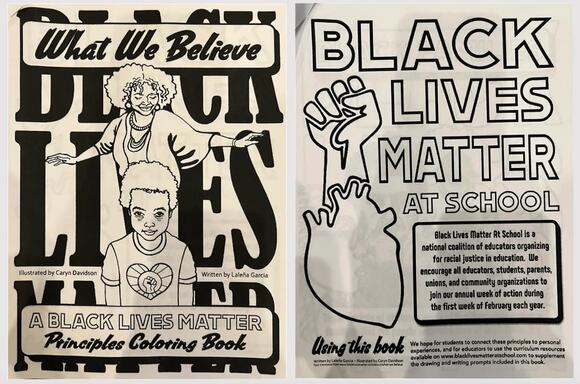 What We Believe
BLACK
LIVES
MATTER
Illustrated by Caryn Davidson
Written by Laleña Garcia
A BLACK LIVES MATTER
Principles Coloring Book
BLACK
LIVES
MATTER
AT SCHOOL
Black Lives Matter At School is a
national coalition of educators organizing
for racial justice in education. We
encourage all educators, students, parents,
unions, and community organizations to
join our annual week of action during
the first week of February each year.
Using this book
We hope for students to connect these principles to personal
experiences, and for educators to use the curriculum resources
available on www.blacklivesmatteratschool.com to supplement
the drawing and writing prompts included in this book.
written by Laleña Garcia - illustrated by Caryn Davidson